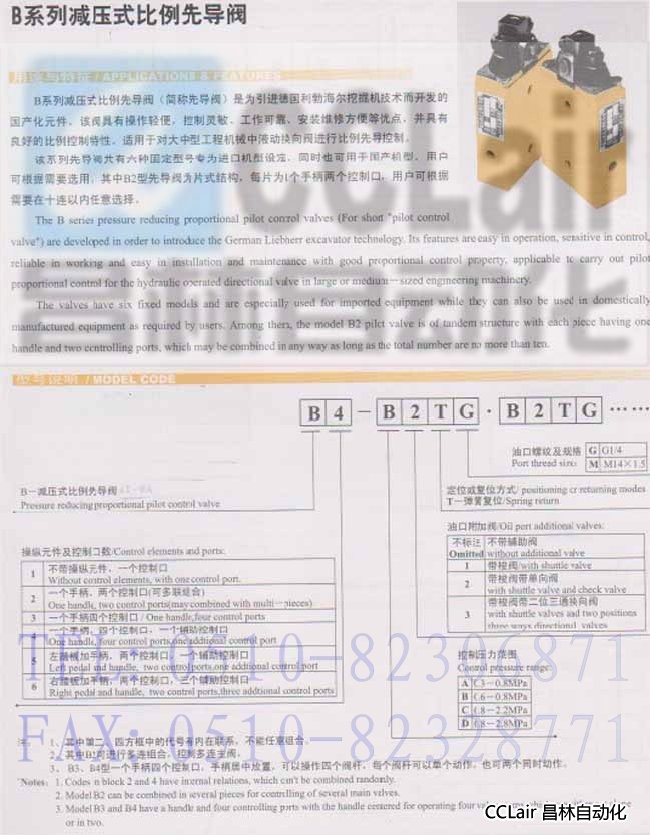 B系列减压式比例先导阀
用途与特征 / APPLICATIONS & FEATURES
B系列减压式比例先导阀（简称先导阀）是为引进德国利勃海尔挖掘机技术而开发的
国产化元件。该阀具有操作轻便，控制灵敏、工作可靠、安装维修方便等优点，并具有
良好的比例控制特性。适用于对大中型工程机械中液动换向阀进行比例先导控制。
该系列先导阀共有六种固定型号专为进口机型设定，同时也可用于国产机型，用户
可根据需要选用，其中B2型先导阀为片式结构，每片为1个手柄两个控制口，用户可根据
需要在十连以内任意选择。
The B series pressure reducing proportional pilot control valves (For short "pilot control
valve") are developed in order to introduce the German Liebherr excavator technology. Its features are easy in operation, sensitive in control,
reliable in working and easy in installation and maintenance with good proportional control property, applicable to carry out pilot
proportional control for the hydraulic operated directional valve in large or medium-sized engineering machinery.
The valves have six fixed models and are especially used for imported equipment while they can also be used in domestically
manufactured equipment as required by users. Among them, the model B2 pilot valve is of tandem structure with each piece having one
handle and two controlling ports, which may be combined in any way as long as the total number are no more than ten.
型号说明 / MODEL CODE
B 4 - B 2 T G · B 2 T G ……
油口螺纹及规格 G G1/4
Port thread size: M M14×1.5
B—减压式比例先导阀
Pressure reducing proportional pilot control valve
定位或复位方式/ positioning or returning modes
T—弹簧复位/Spring return
油口附加阀/Oil port additional valves:
不标注 不带辅助阀
Omitted without additional valve
1 带梭阀/with shuttle valve
2 带梭阀带单向阀
with shuttle valve and check valve
3 带梭阀带二位三通换向阀
with shuttle valves and two positions
three ways directional valves
操纵元件及控制口数/Control elements and ports:
1 不带操纵元件，一个控制口
Without control elements, with one control port.
2 一个手柄，两个控制口(可多联组合)
One handle, two control ports(may combined with multi-pieces)
3 一个手柄四个控制口 / One handle,four control ports
一个手柄，四个控制口，一个辅助控制口
One handle, four control ports,one additional control port
5 左踏板加手柄，两个控制口，一个辅助控制口
Left pedal and handle, two control ports,one addtional control port
6 右踏板加手柄，两个控制口，三个辅助控制口
Right pedal and handle, two control ports,three addtional control ports
TEL: 0510-82326871
控制压力范围
Control pressure range:
A 0.3-0.8MPa
B 0.6-0.8MPa
C 0.8-2.2MPa
D 0.8-2.8MPa
FAX: 0510-82328771
注: 1、其中第二、四方框中的代号有内在联系，不能任意组合。
2、其中B2可进行多连组合，控制多连主阀。
3、B3、B4型一个手柄四个控制口，手柄居中放置，可以操作四个阀杆，每个阀杆可以单个动作，也可两个同时动作。
Notes: 1. Codes in block 2 and 4 have internal relations, which can't be combined randomly.
2. Model B2 can be combined in several pieces for controlling of several main valves.
3. Model B3 and B4 have a handle and four controlling ports with the handle centered for operating four
or in two.
CCLair 昌林自动化